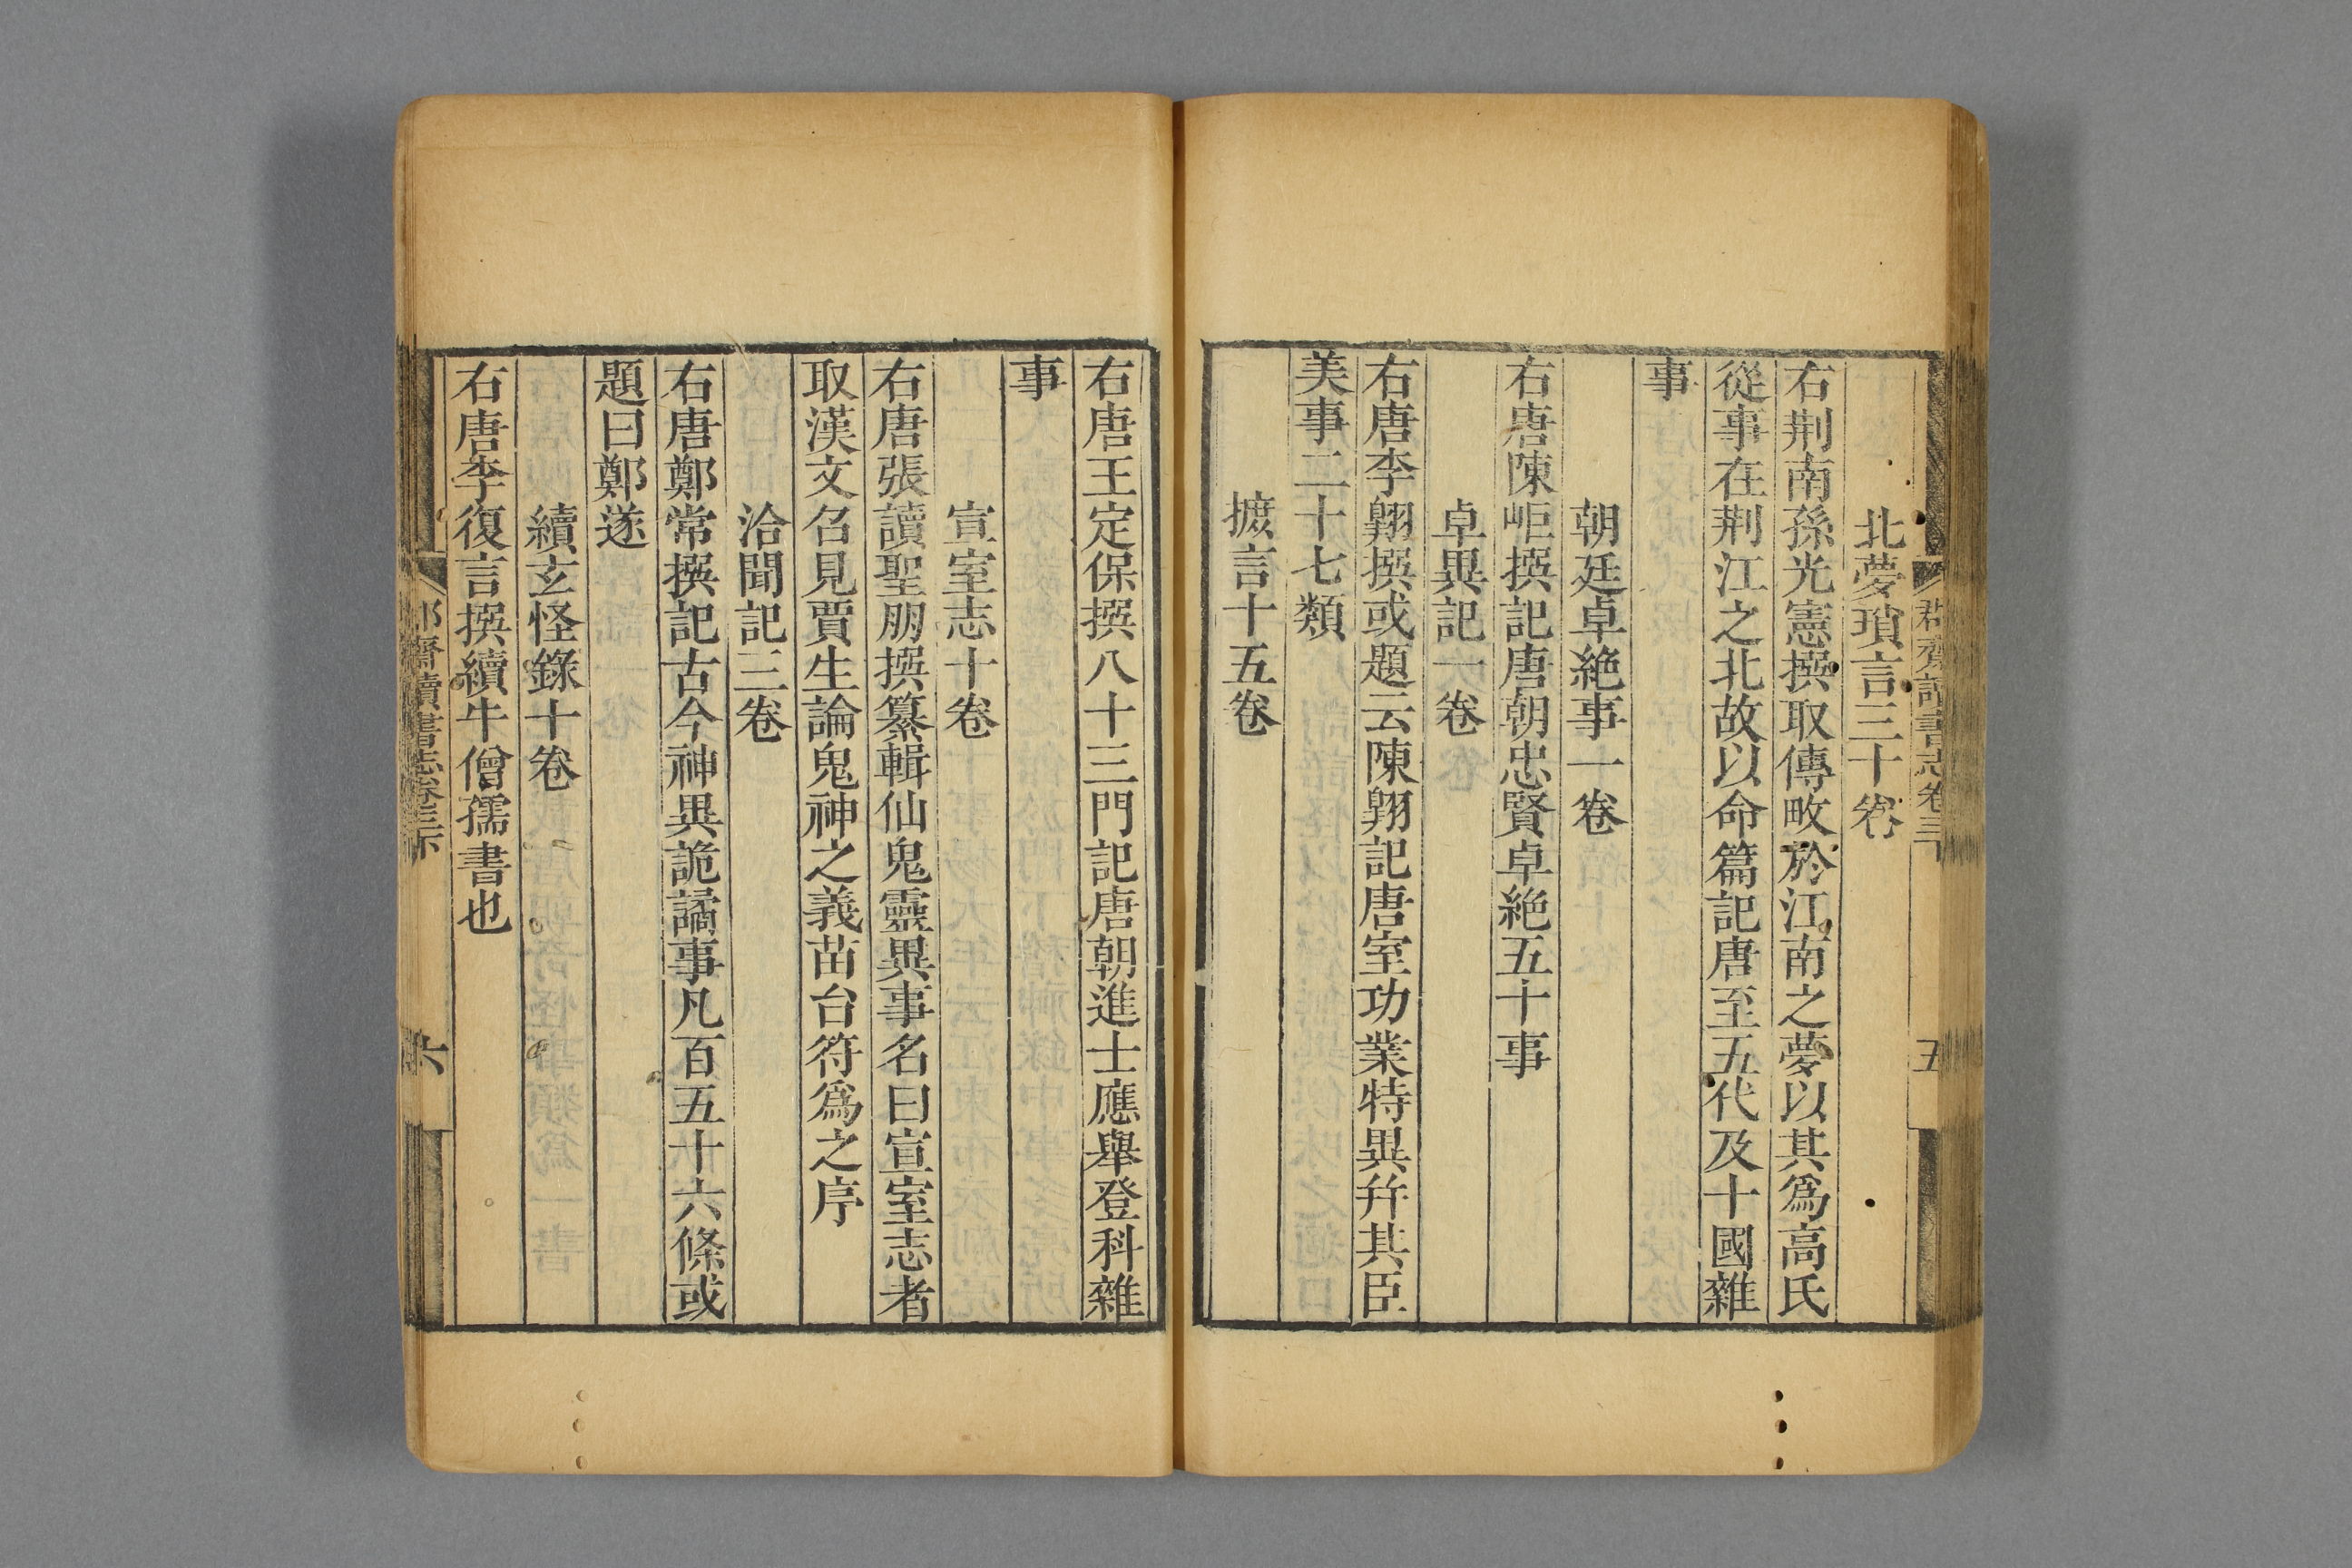 郡齋讀書志卷三下
五
北夢瑣言三十卷
右荆南孫光憲撰取傳畋於江南之夢以其爲高氏
從事在荆江之北故以命篇記唐至五代及十國雜
事
朝廷卓絶事一卷
右唐陳岠撰記唐朝忠賢卓絶五十事
卓異記一卷
右唐李翺撰或題云陳翺記唐室功業特異幷其臣
美事二十七類
摭言十五卷
右唐王定保撰八十三門記唐朝進士應舉登科雜
事
宣室志十卷
右唐張讀聖朋撰纂輯仙鬼靈異事名曰宣室志者
取漢文召見賈生論鬼神之義苗台符爲之序
洽聞記三卷
右唐鄭常撰記古今神異詭譎事凡百五十六條或
題曰鄭遂
續玄怪錄十卷
右唐李復言撰續牛僧孺書也
郡齋讀書志卷三下
六